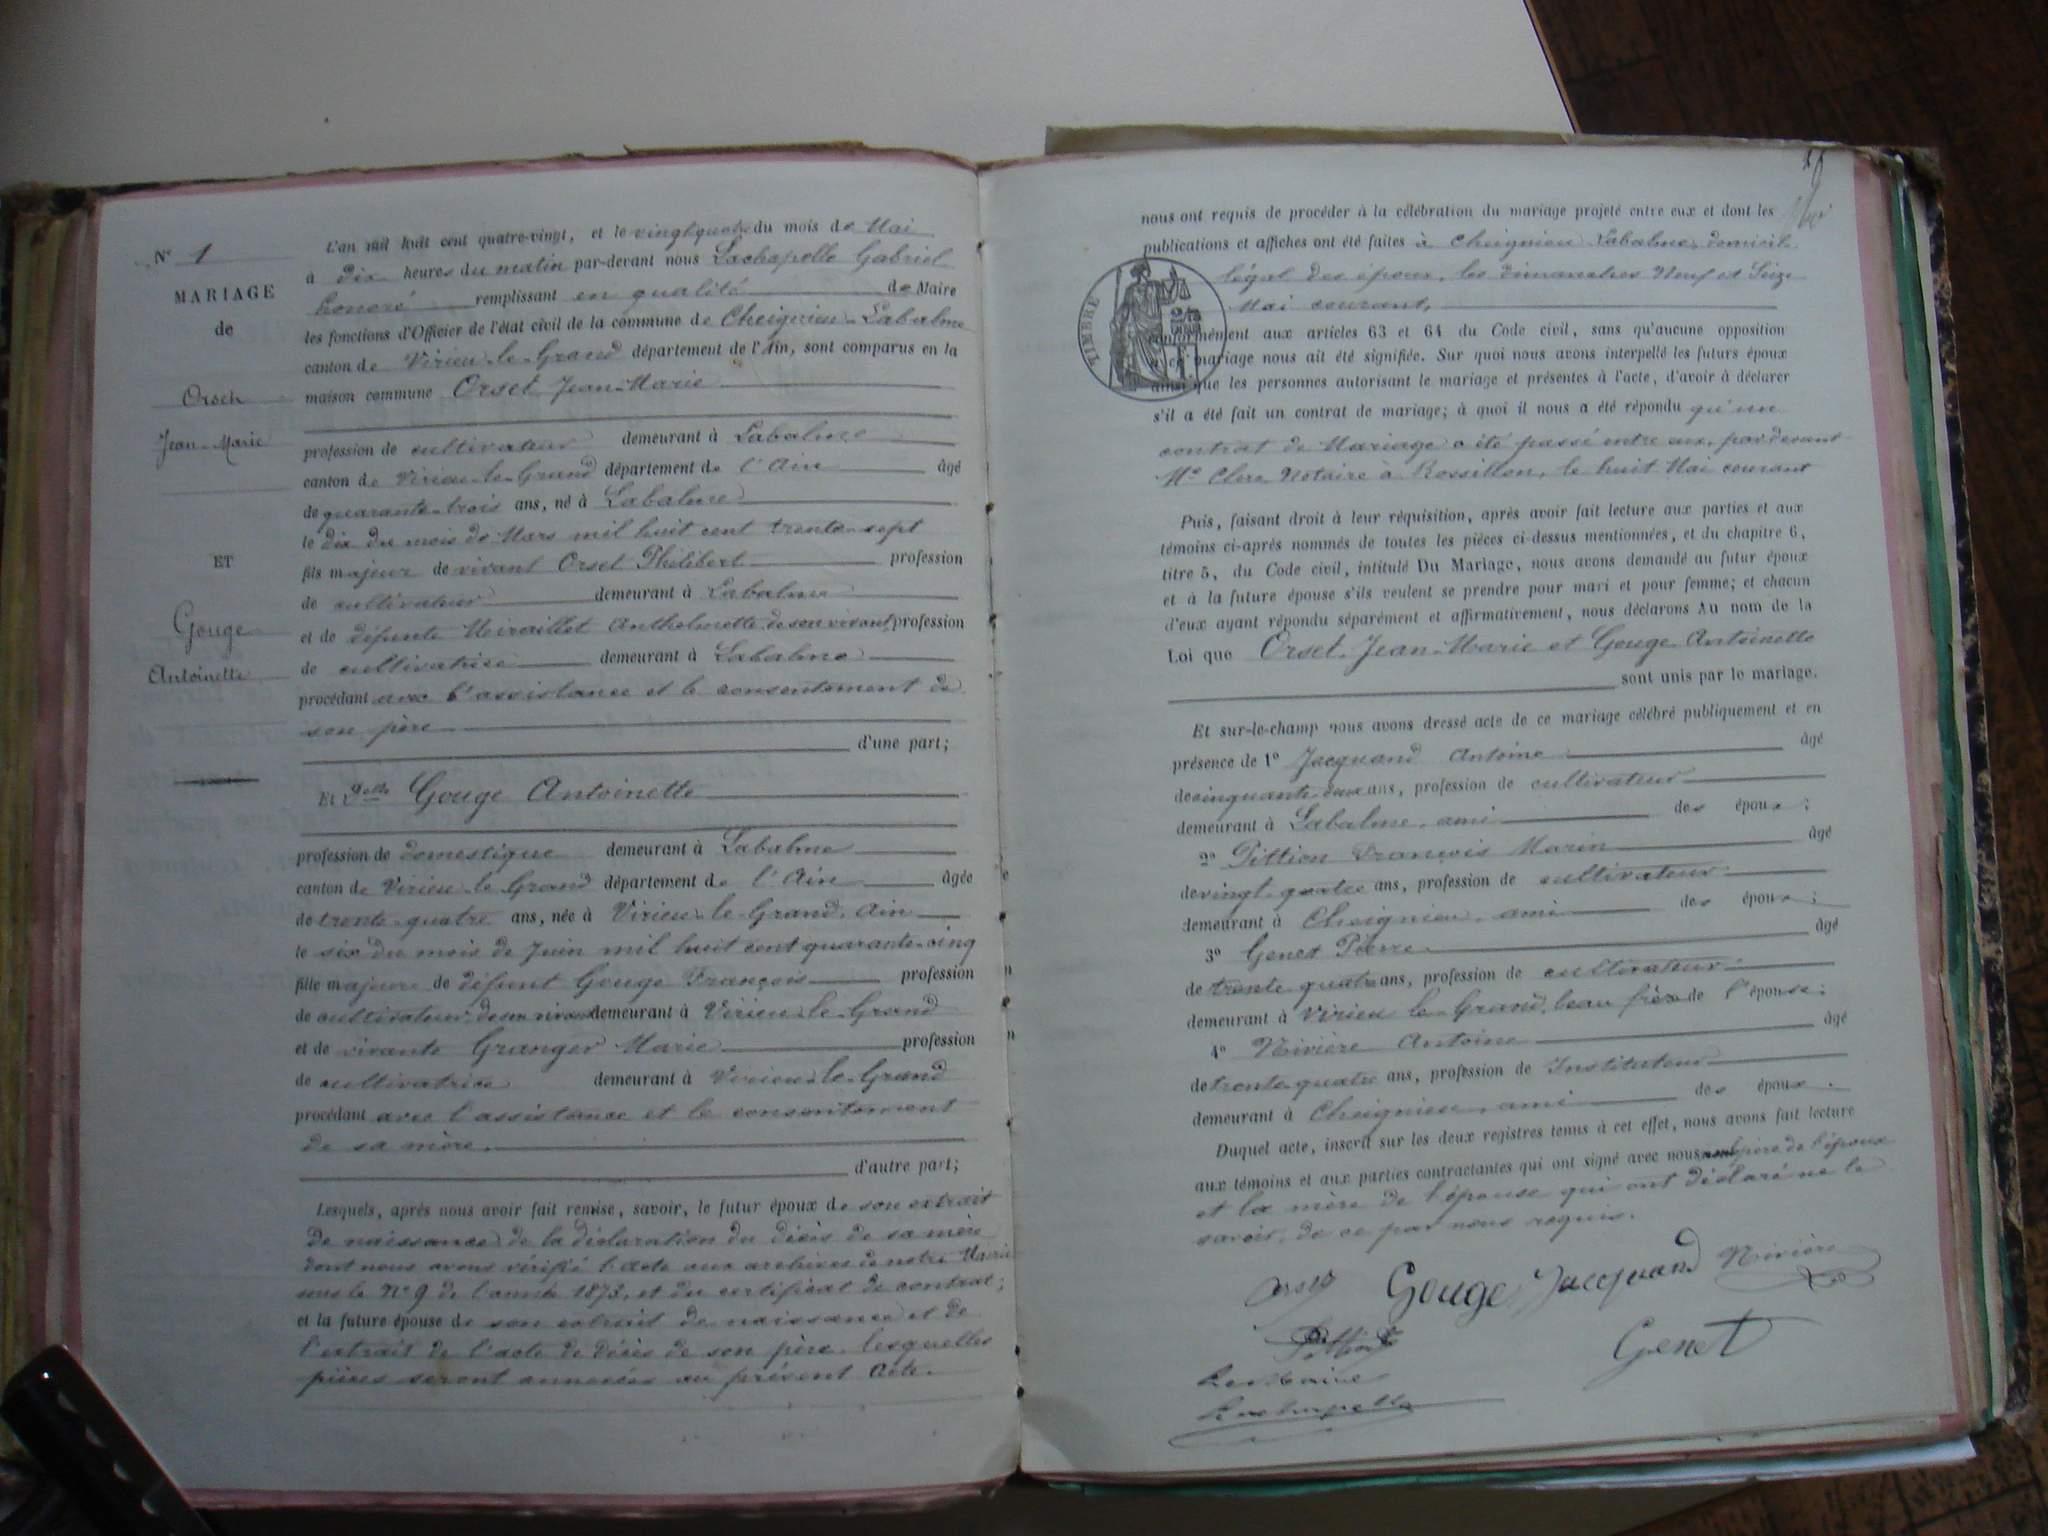 N° 1
MARIAGE
de
Orset
Jean-Marie
ET
Gouge
Antoinette
L'an mil huit cent quatre-vingt, et le vingtquatre du mois de Mai
à dix heures du matin par-devant nous Lachapelle Gabriel
honoré remplissant en qualité de Maire
les fonctions d'Officier de l'état civil de la commune de Cheignieu-Labalme
canton de Virieu-le-Grand département de l'Ain, sont comparus en la
maison commune Orset Jean-Marie
profession de cultivateur demeurant à Labalme
canton de Virieu-le-Grand département de l'Ain âgé
de quarante-trois ans, né à Labalme
le dix du mois de Mars mil huit cent trente-sept
fils majeur de vivant Orset Philibert profession
de cultivateur demeurant à Labalme
et de défunte Miraillet Anthelmette de son vivant profession
de cultivatrice demeurant à Labalme
procédant avec l'assistance et le consentement de
son père
d'une part;
Et Delle Gouge Antoinette
profession de domestique demeurant à Labalme
canton de Virieu-le-Grand département de l'Ain âgée
de trente-quatre ans, née à Virieu-le-Grand, Ain
le six du mois de Juin mil huit cent quarante-cinq
fille majeure de défunt Gouge François profession
de cultivateur de son vivant demeurant à Virieu-le-Grand
et de vivante Granger Marie profession
de cultivatrice demeurant à Virieu-le-Grand
procédant avec l'assistance et le consentement
de sa mère.
d'autre part;
Lesquels, après nous avoir fait remise, savoir, le futur époux de son extrait
de naissance de la déclaration du décès de sa mère
dont nous avons vérifié l'acte aux archives de notre Mairie
sous le N° 9 de l'année 1873, et du certificat de contrat;
et la future épouse de son extrait de naissance et de
l'extrait de l'acte de décès de son père. lesquelles
pièces seront annexées au présent Acte.
nous ont requis de procéder à la célébration du mariage projeté entre eux et dont les
publications et affiches ont été faites à Cheignieu Labalme, domicile
légal des époux, les dimanches Neuf et Seize
Mai courant,
TIMBRE
conformément aux articles 63 et 64 du Code civil, sans qu'aucune opposition
à ce mariage nous ait été signifiée. Sur quoi nous avons interpellé les futurs époux
ainsi que les personnes autorisant le mariage et présentes à l'acte, d'avoir à déclarer
s'il a été fait un contrat de mariage; à quoi il nous a été répondu qu'un
contrat de Mariage a été passé entre eux, par devant
Me Clerc Notaire à Rossillon, le huit Mai courant
Puis, faisant droit à leur réquisition, après avoir fait lecture aux parties et aux
témoins ci-après nommés de toutes les pièces ci-dessus mentionnées, et du chapitre 6,
titre 5, du Code civil, intitulé Du Mariage, nous avons demandé au futur époux
et à la future épouse s'ils veulent se prendre pour mari et pour femme; et chacun
d'eux ayant répondu séparément et affirmativement, nous déclarons Au nom de la
Loi que Orset Jean-Marie et Gouge Antoinette
sont unis par le mariage.
Et sur-le-champ nous avons dressé acte de ce mariage célébré publiquement et en
présence de 1° Jacquand Antoine âgé
de cinquante deux ans, profession de cultivateur
demeurant à Labalme, ami des époux;
2° Pittion François Marin âgé
de vingt-quatre ans, profession de cultivateur
demeurant à Cheignieu, ami des époux;
3° Genet Pierre âgé
de trente quatre ans, profession de cultivateur
demeurant à Virieu-le-Grand, beau frère de l'épouse;
4° Nivière Antoine âgé
de trente-quatre ans, profession de Instituteur
demeurant à Cheignieu, ami des époux.
Duquel acte, inscrit sur les deux registres tenus à cet effet, nous avons fait lecture
aux témoins et aux parties contractantes qui ont signé avec nous père de l'époux
et la mère de l'épouse qui ont déclaré ne le
savoir, de ce par nous requis.
Orset Gouge Jacquand Nivière
Pittion Genet
Le Maire
Lachapelle